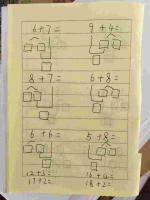 6+7= 9+4=
8+7= 6+8=
6+6= 5+8=
12+3= 16+4=
17+2= 18+2=